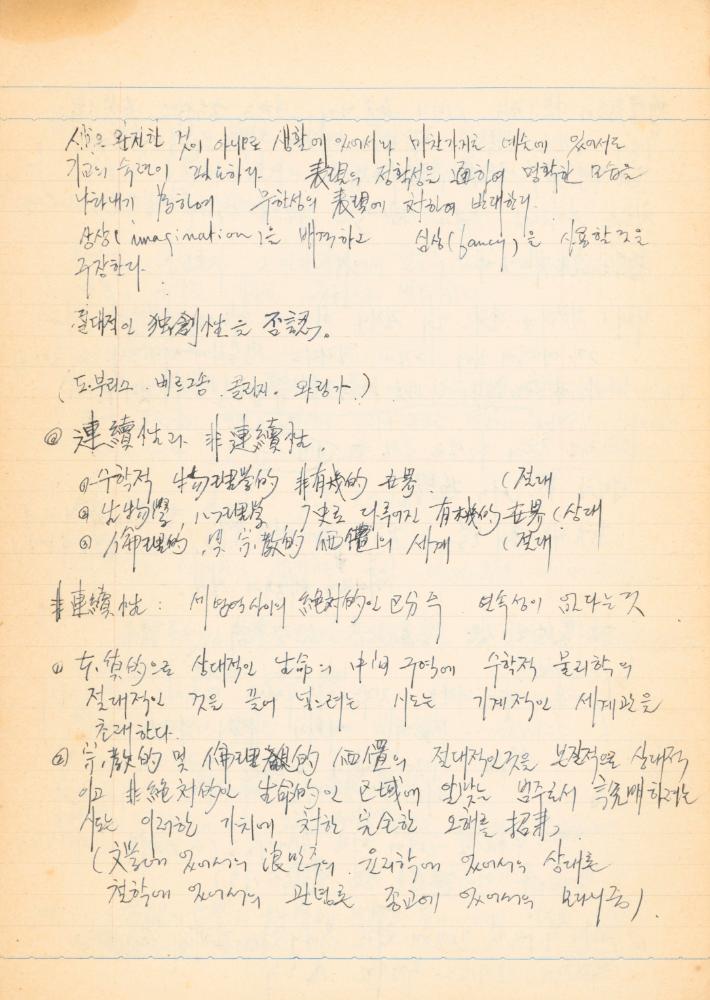 사람은 완전한 것이 아니므로 생활에 있어서나 마찬가지로 예술에 있어서도
기교의 숙련이 필요하다. 表現의 정확성을 通하여 명확한 모습을
나타내기 爲하여 무한성의 表現에 対하여 반대한다.
상상(imagination)을 배격하고 심상(fancy)을 사용할 것을
주장한다.
절대적인 独創性을 否認.
(도.부리스. 베르그송. 콜리지. 와링가.)
◎ 連續性과 非連續性.
① 수학적 物理学的 非有機的 世界. (절대
② 生物學, 心理学, 史로 다루어진 有機的 世界 (상대
③ 倫理的 및 宗敎的 価値의 세계 (절대
非連續性 : 세 영역 사이의 絶対的인 区分 연속성이 없다는 것.
① 本質的으로 상대적인 生命의 中间 구역에 수학적 물리학의
절대적인 것을 끌어 넣으려는 시도는 기계적인 세계관을
초래한다.
② 宗敎的 및 倫理的 価値의 절대적인 것을 본질적으로 상대적
이고 非絶対的인 生命的인 区域에 알맞는 범주로서 하려는
시도는 이러한 가치에 対한 完全한 오해를 招来,
(文学에 있어서의 浪만주의. 윤리학에 있어서의 상대론
철학에 있어서의 관념론 종교에 있어서의 모더니즘).